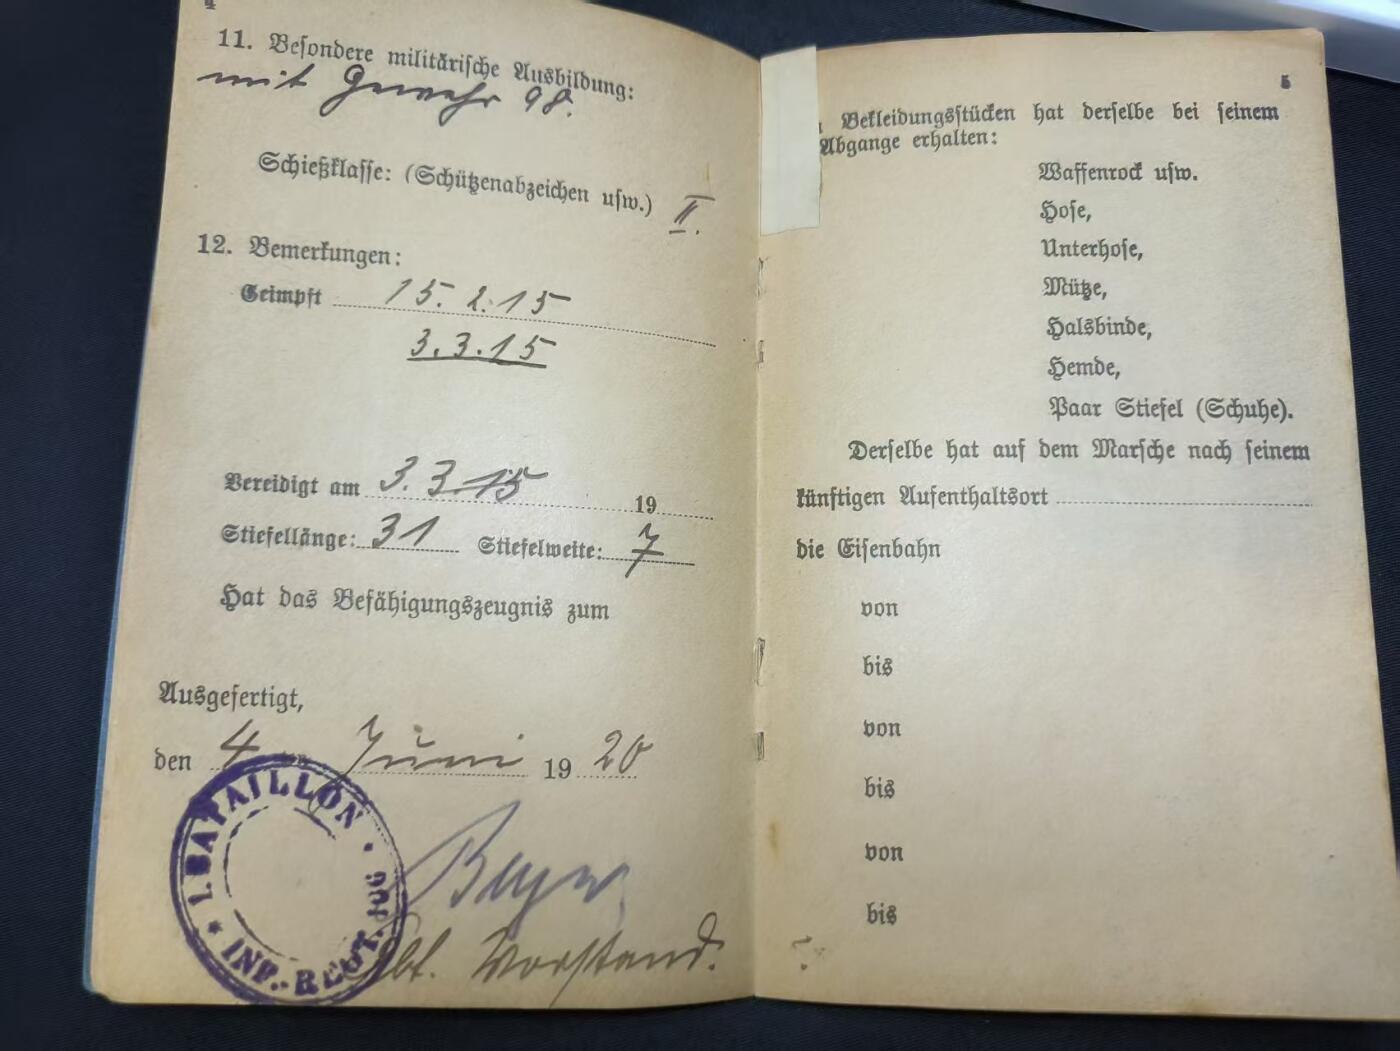 4
11. Besondere militärische Ausbildung:
mit Gewehr 98.
Schießklasse: (Schützenabzeichen usw.) II.
12. Bemerkungen:
Geimpft 15. 2. 15
3. 3. 15
Vereidigt am 3. 3. 15 19
Stiefellänge: 31 Stiefelweite: 7
Hat das Befähigungszeugnis zum
Ausgefertigt,
den 4 Juni 19 20
I. BATAILLON · INF.-REGT.
Vorstand.
5
Bekleidungsstücken hat derselbe bei seinem
Abgange erhalten:
Waffenrock usw.
Hose,
Unterhose,
Mütze,
Halsbinde,
Hemde,
Paar Stiefel (Schuhe).
Derselbe hat auf dem Marsche nach seinem
künftigen Aufenthaltsort
die Eisenbahn
von
bis
von
bis
von
bis